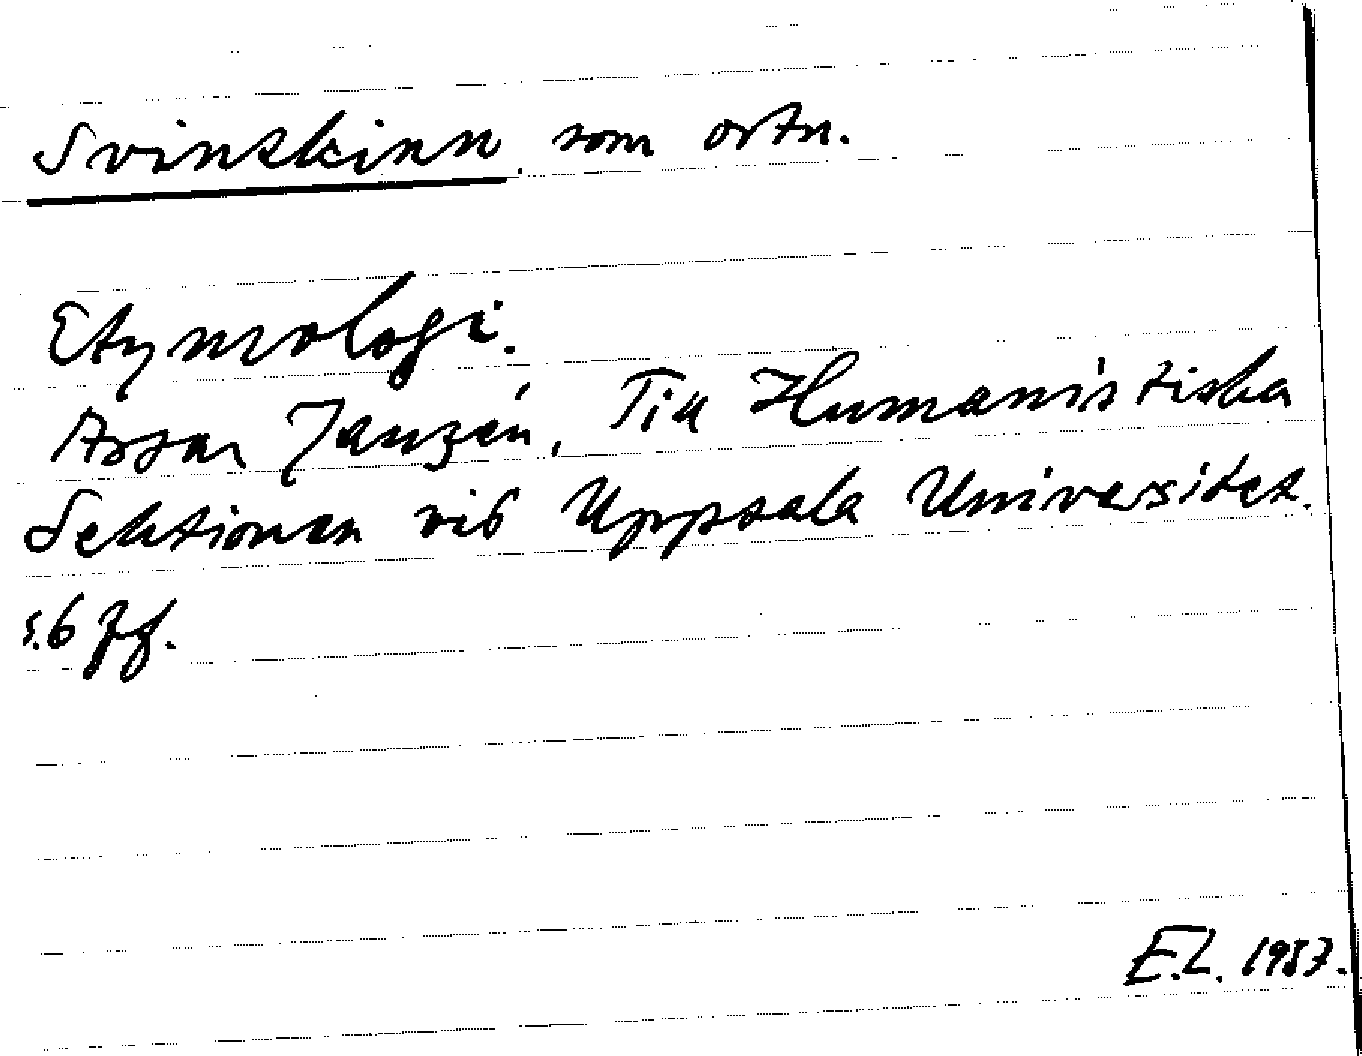 Svinskinn som ortn.
Etymologi.
Assar Janzén, Till Humanistiska
Sektionen vid Uppsala Universitet.
s. 6 ff.
E.L. 1987.